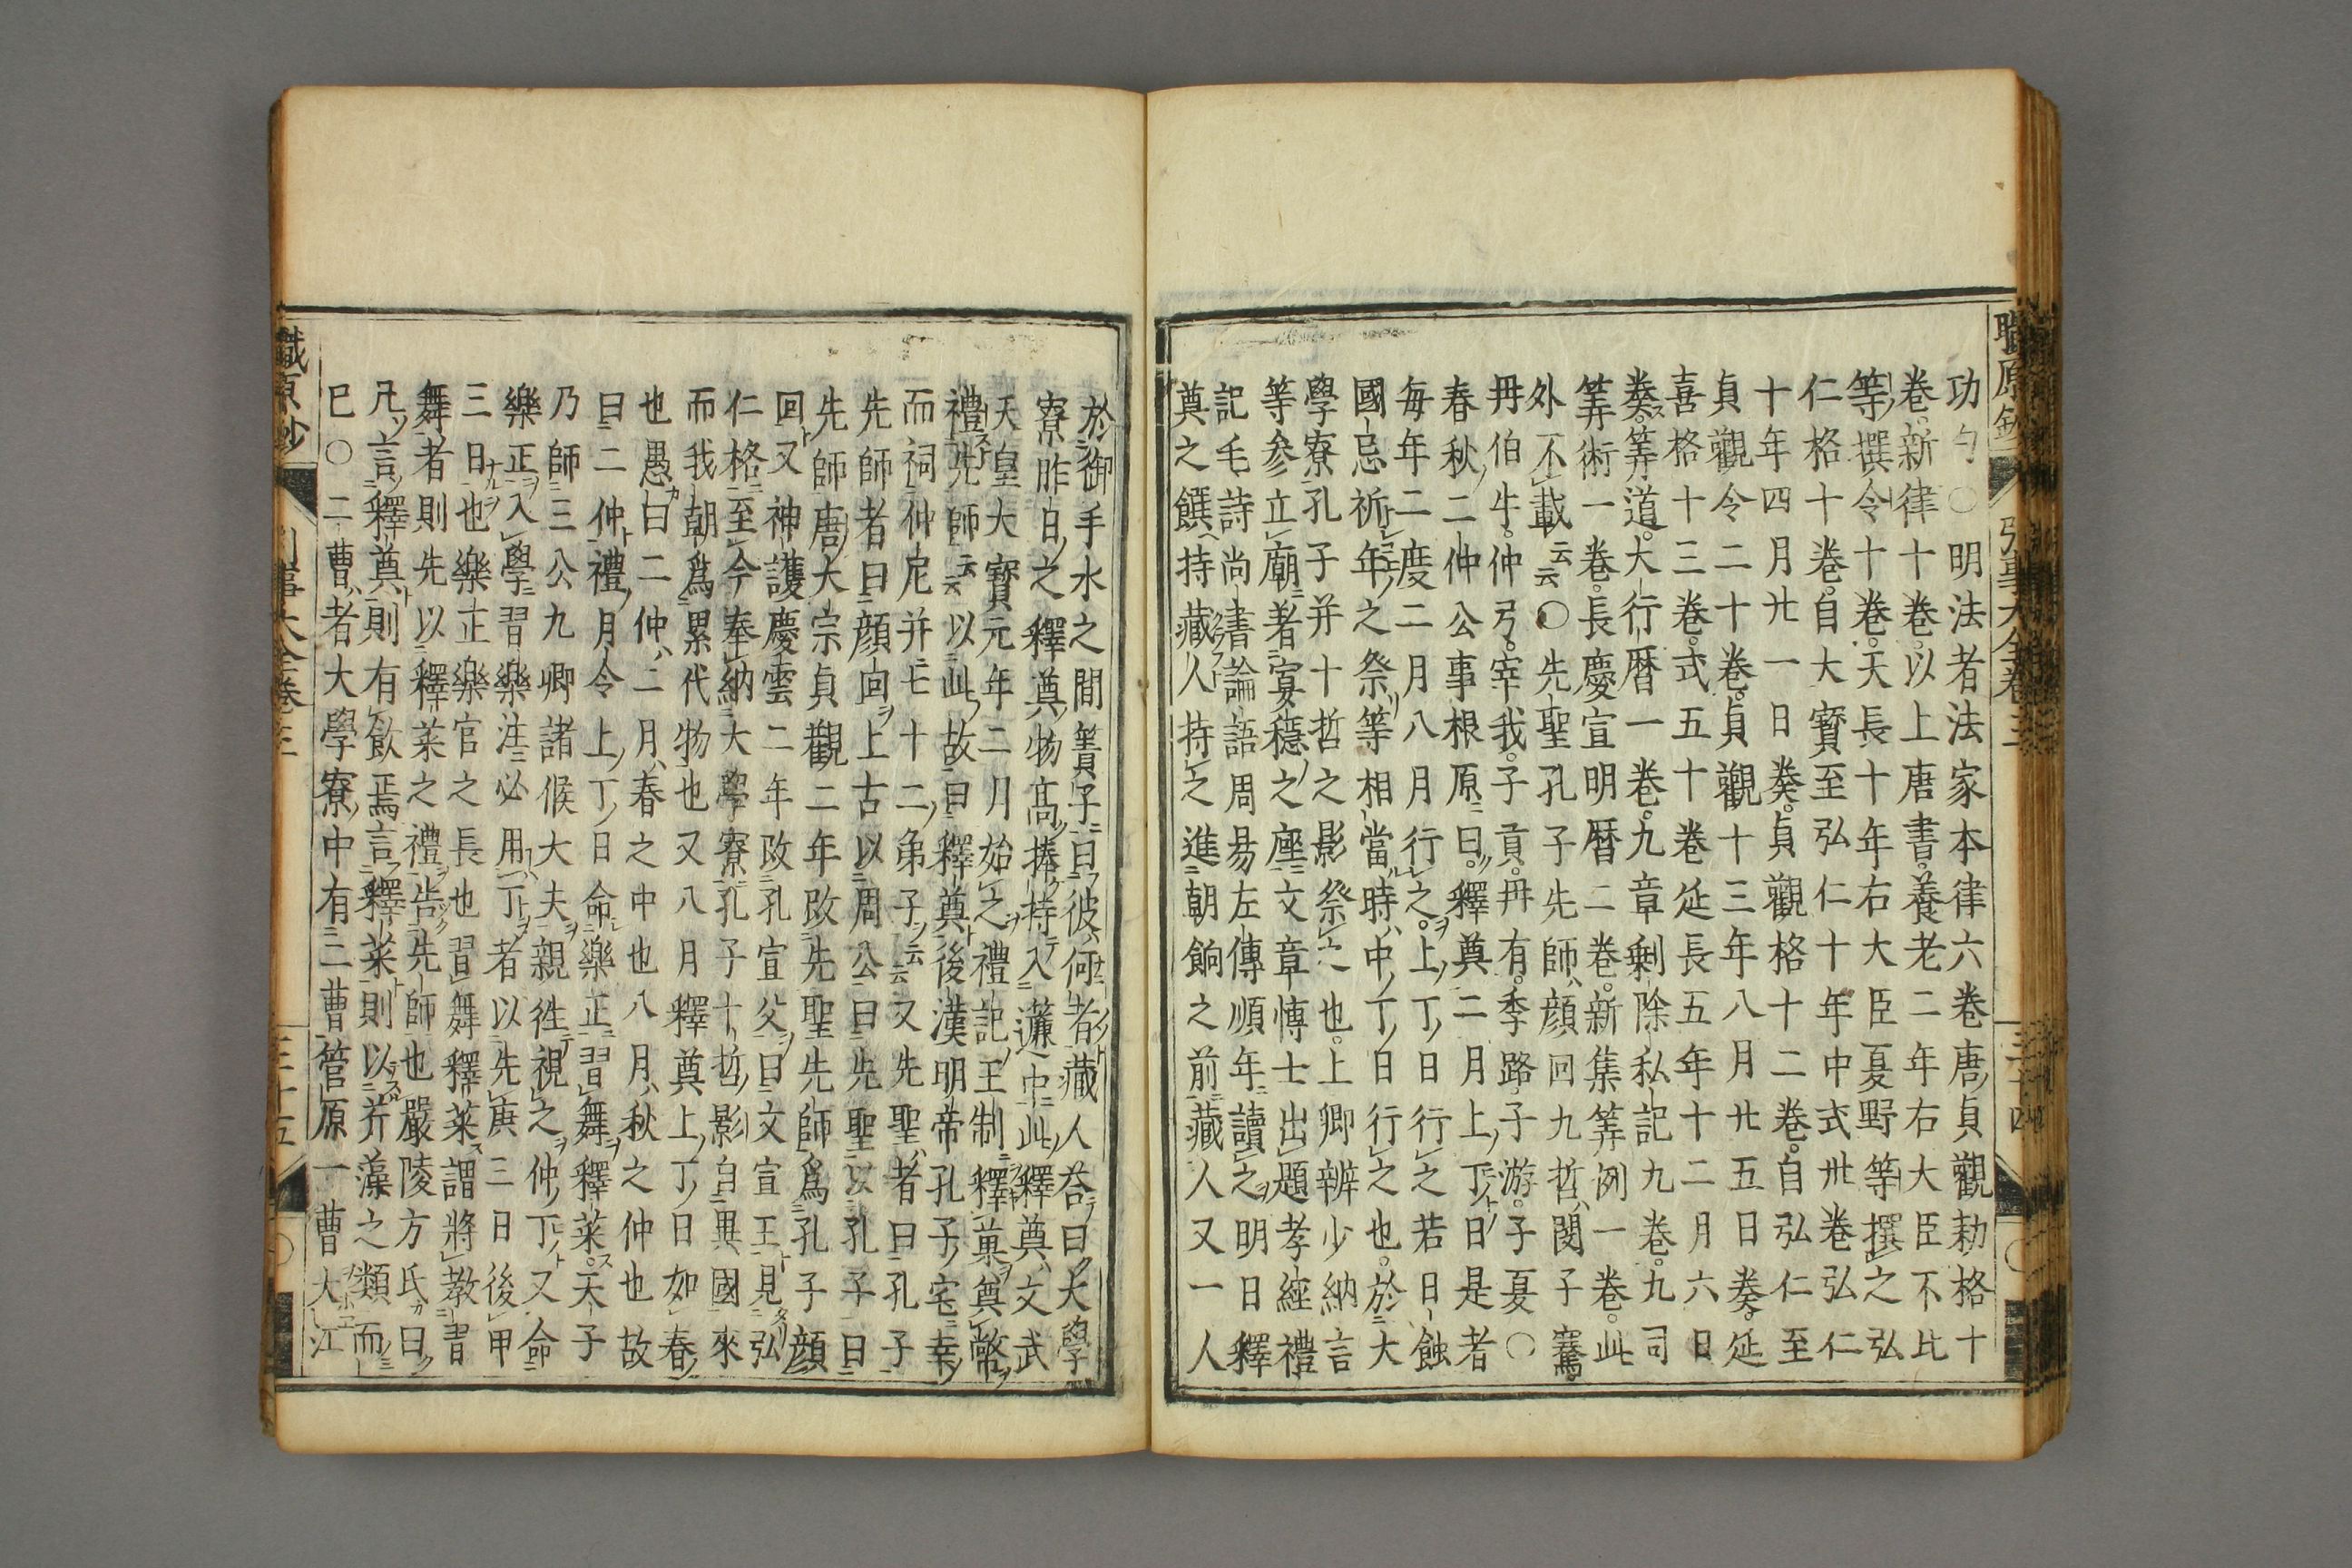 職原鈔 引事大全卷三 三十四
功勻○明法者法家本律六卷唐貞觀勅格十
卷。新律十卷。以上唐書。養老二年右大臣不比
等撰令十卷。天長十年右大臣夏野等撰之弘
仁格十卷。自大寳至弘仁十年中式卅卷弘仁
十年四月廿一日奏。貞觀格十二卷。自弘仁至
貞觀令二十卷。貞觀十三年八月廿五日奏。延
喜格十三卷。式五十卷延長五年十二月六日
奏。筭道。大行曆一卷。九章剰除私記九卷。九司
筭術一卷。長慶宣明曆二卷。新集筭例一卷。此
外不載云云○先聖孔子先師顔回九哲閔子騫。
冉伯牛。仲弓。宰我。子貢。冉有。季路。子游。子夏○
春秋二仲公事根原曰。釋奠二月上丁日是者
毎年二度二月八月行之。上丁日行之若日蝕
國忌祈年之祭等相當時中丁日行之也。於大
學寮孔子并十哲之影祭之也。上卿辨少納言
等参立廟著宴穩之座文章博士出題孝經禮
記毛詩尚書論語周易左傳順年讀之明日釋
奠之饌持藏人持之進朝餉之前藏人又一人
於御手水之間簀子曰彼何者藏人荅曰大學
寮昨日之釋奠物髙捧持入簾中此釋奠文武
天皇大寳元年二月始之禮記王制釋菓奠幣
禮先師云云以此故曰釋奠後漢明帝孔子宅幸
而祠仲尼并七十二弟子云云又先聖者曰孔子
先師者曰顔回上古以周公曰先聖以孔子曰
先師唐大宗貞觀二年改先聖先師爲孔子顔
回又神護慶雲二年改孔宣父曰文宣王見弘
仁格至今奉納大學寮孔子十哲影自異國來
而我朝爲累代物也又八月釋奠上丁日如春
也愚曰二仲二月春之中也八月秋之仲也故
曰二仲禮月令上丁日命樂正習舞釋菜。天子
乃師三公九卿諸侯大夫親徃視之仲丁又命
樂正入學習樂注必用丁者以先庚三日後甲
三日也樂正樂官之長也習舞釋菜謂將教習
舞者則先以釋菜之禮告先師也嚴陵方氏曰
凡言釋奠則有飲焉言釋菜則以芹藻之類而
已○二曹者大學寮中有二曹菅原一曹大江
職原鈔 引事大全卷三 三十五